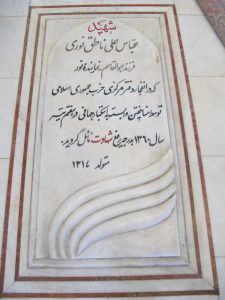 شهید
عباس علی ناطق نوری
فرزند ابوالقاسم، نماینده نور
که در انفجار دفتر مرکزی حزب جمهوری اسلامی
توسط منافقین وابسته به استکبار جهانی در هفتم تیر
سال ۱۳۶۰ بدرجه رفیع شهادت نائل گردید.
متولد ۱۳۱۷